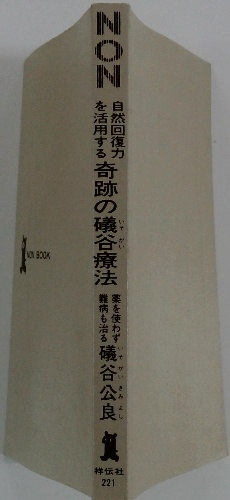 NON
自然回復力
を活用する
奇跡の礒谷療法
いそがい
薬を使わず
難病も治る
礒谷公良
いそがいきみよし
祥伝社
221
NON BOOK